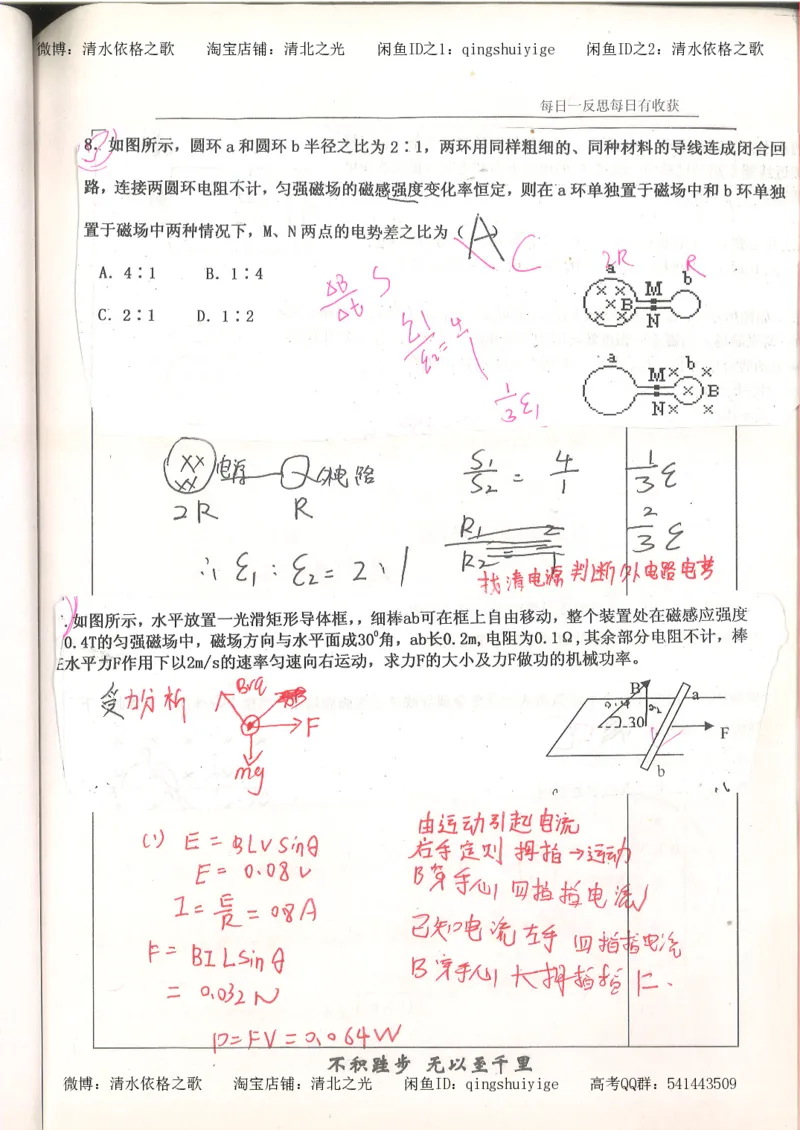 微博：清水依格之歌　淘宝店铺：清北之光　闲鱼ID之1：qingshuiyige　闲鱼ID之2：清水依格之歌
每日一反思每日有收获
8. 如图所示，圆环a和圆环b半径之比为2∶1，两环用同样粗细的、同种材料的导线连成闭合回
路，连接两圆环电阻不计，匀强磁场的磁感强度变化率恒定，则在a环单独置于磁场中和b环单独
置于磁场中两种情况下，M、N两点的电势差之比为（A）
C
A. 4∶1　B. 1∶4
C. 2∶1　D. 1∶2
ΔB/Δt S
ε1/ε2 = 4/1
1/3 ε1
2R R
a b
M
B
N
a b
M
B
N
电源 外电路
2R R
S1/S2 = 4/1
1/3 ε
R1/R2 = 2/1
2/3 ε
∴ ε1 : ε2 = 2:1
找清电源 判断外电路电势
如图所示，水平放置一光滑矩形导体框，，细棒ab可在框上自由移动，整个装置处在磁感应强度
0.4T的匀强磁场中，磁场方向与水平面成30⁰角，ab长0.2m,电阻为0.1Ω,其余部分电阻不计，棒
在水平力F作用下以2m/s的速率匀速向右运动，求力F的大小及力F做功的机械功率。
受力分析
F
mg
B a
0.4
30
F
b
(1) E = BLVsinθ
E = 0.08V
I = E/R = 0.8A
F = BILsinθ
= 0.032N
P=FV=0.064W
由运动引起电流
右手定则 拇指→运动
B穿手心 四指指电流
已知电流左手 四指指电流
B穿手心 大拇指指F.
不积跬步 无以至千里
微博：清水依格之歌　淘宝店铺：清北之光　闲鱼ID：qingshuiyige　高考QQ群：541443509